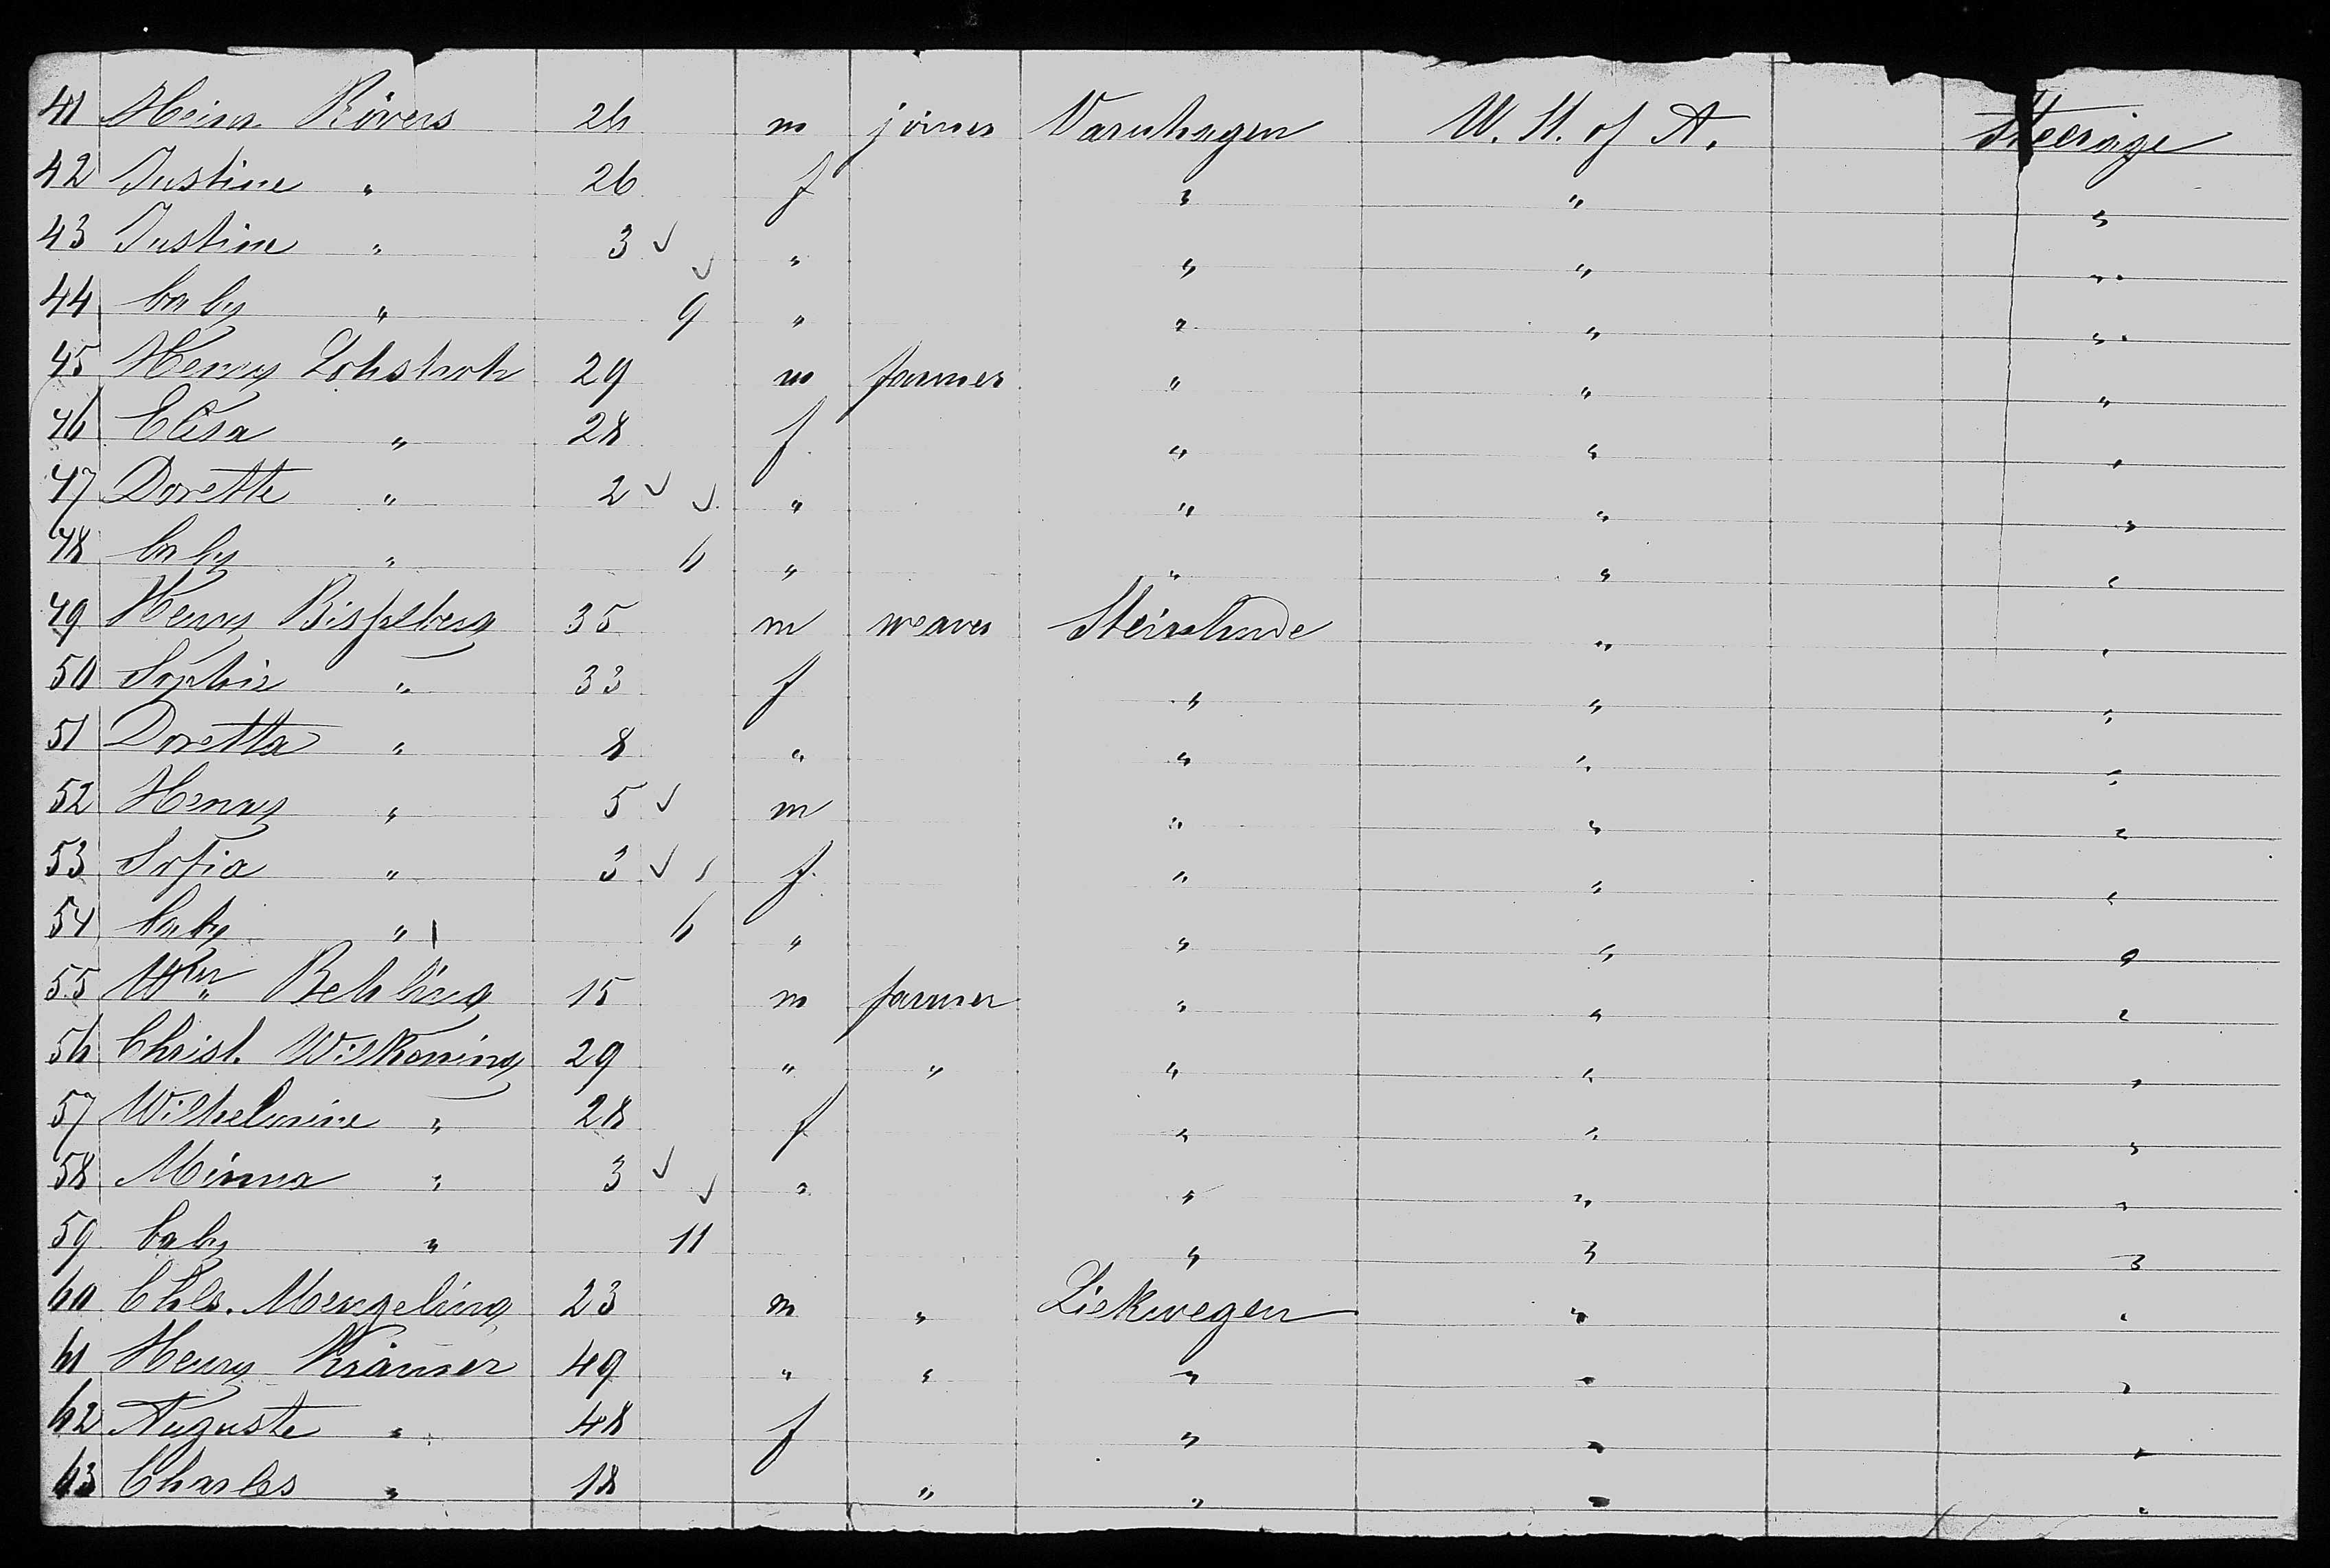 41 Heinr. Rövers 26 m joiner Varnhagen U. S. of A. Steerage
42 Justine " 26 f " " "
43 Justine " 3 " " " "
44 baby " 9 " " " "
45 Henry Lohstroh 29 m farmer " " "
46 Elisa " 28 f " " "
47 Dorette " 2 " " " "
48 baby " 6 " " " "
49 Henry Bispelberg 35 m weaver Steinhude " "
50 Sophie " 33 f " " "
51 Doretta " 8 " " " "
52 Henry " 5 m " " "
53 Sofia " 3 f " " "
54 baby " 6 " " " "
55 Wm Behling 15 m farmer " " "
56 Christ. Wilkening 29 " " " " "
57 Wilhelmine " 28 f " " "
58 Minna " 3 " " " "
59 baby " 11 " " "
60 Chls. Mengeling 23 m " Liekwegen " "
61 Henry Krämer 49 " " " " "
62 Auguste " 48 f " " "
63 Charles " 18 " " " "